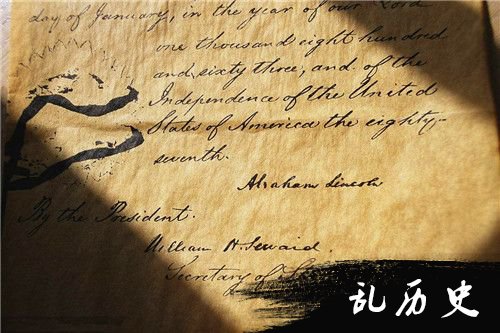 day of January, in the year of our Lord
one thousand eight hundred
and sixty three, and of the
Independence of the United
States of America the eighty-
seventh.
Abraham Lincoln
By the President.
William H. Seward.
Secretary of
乱历史